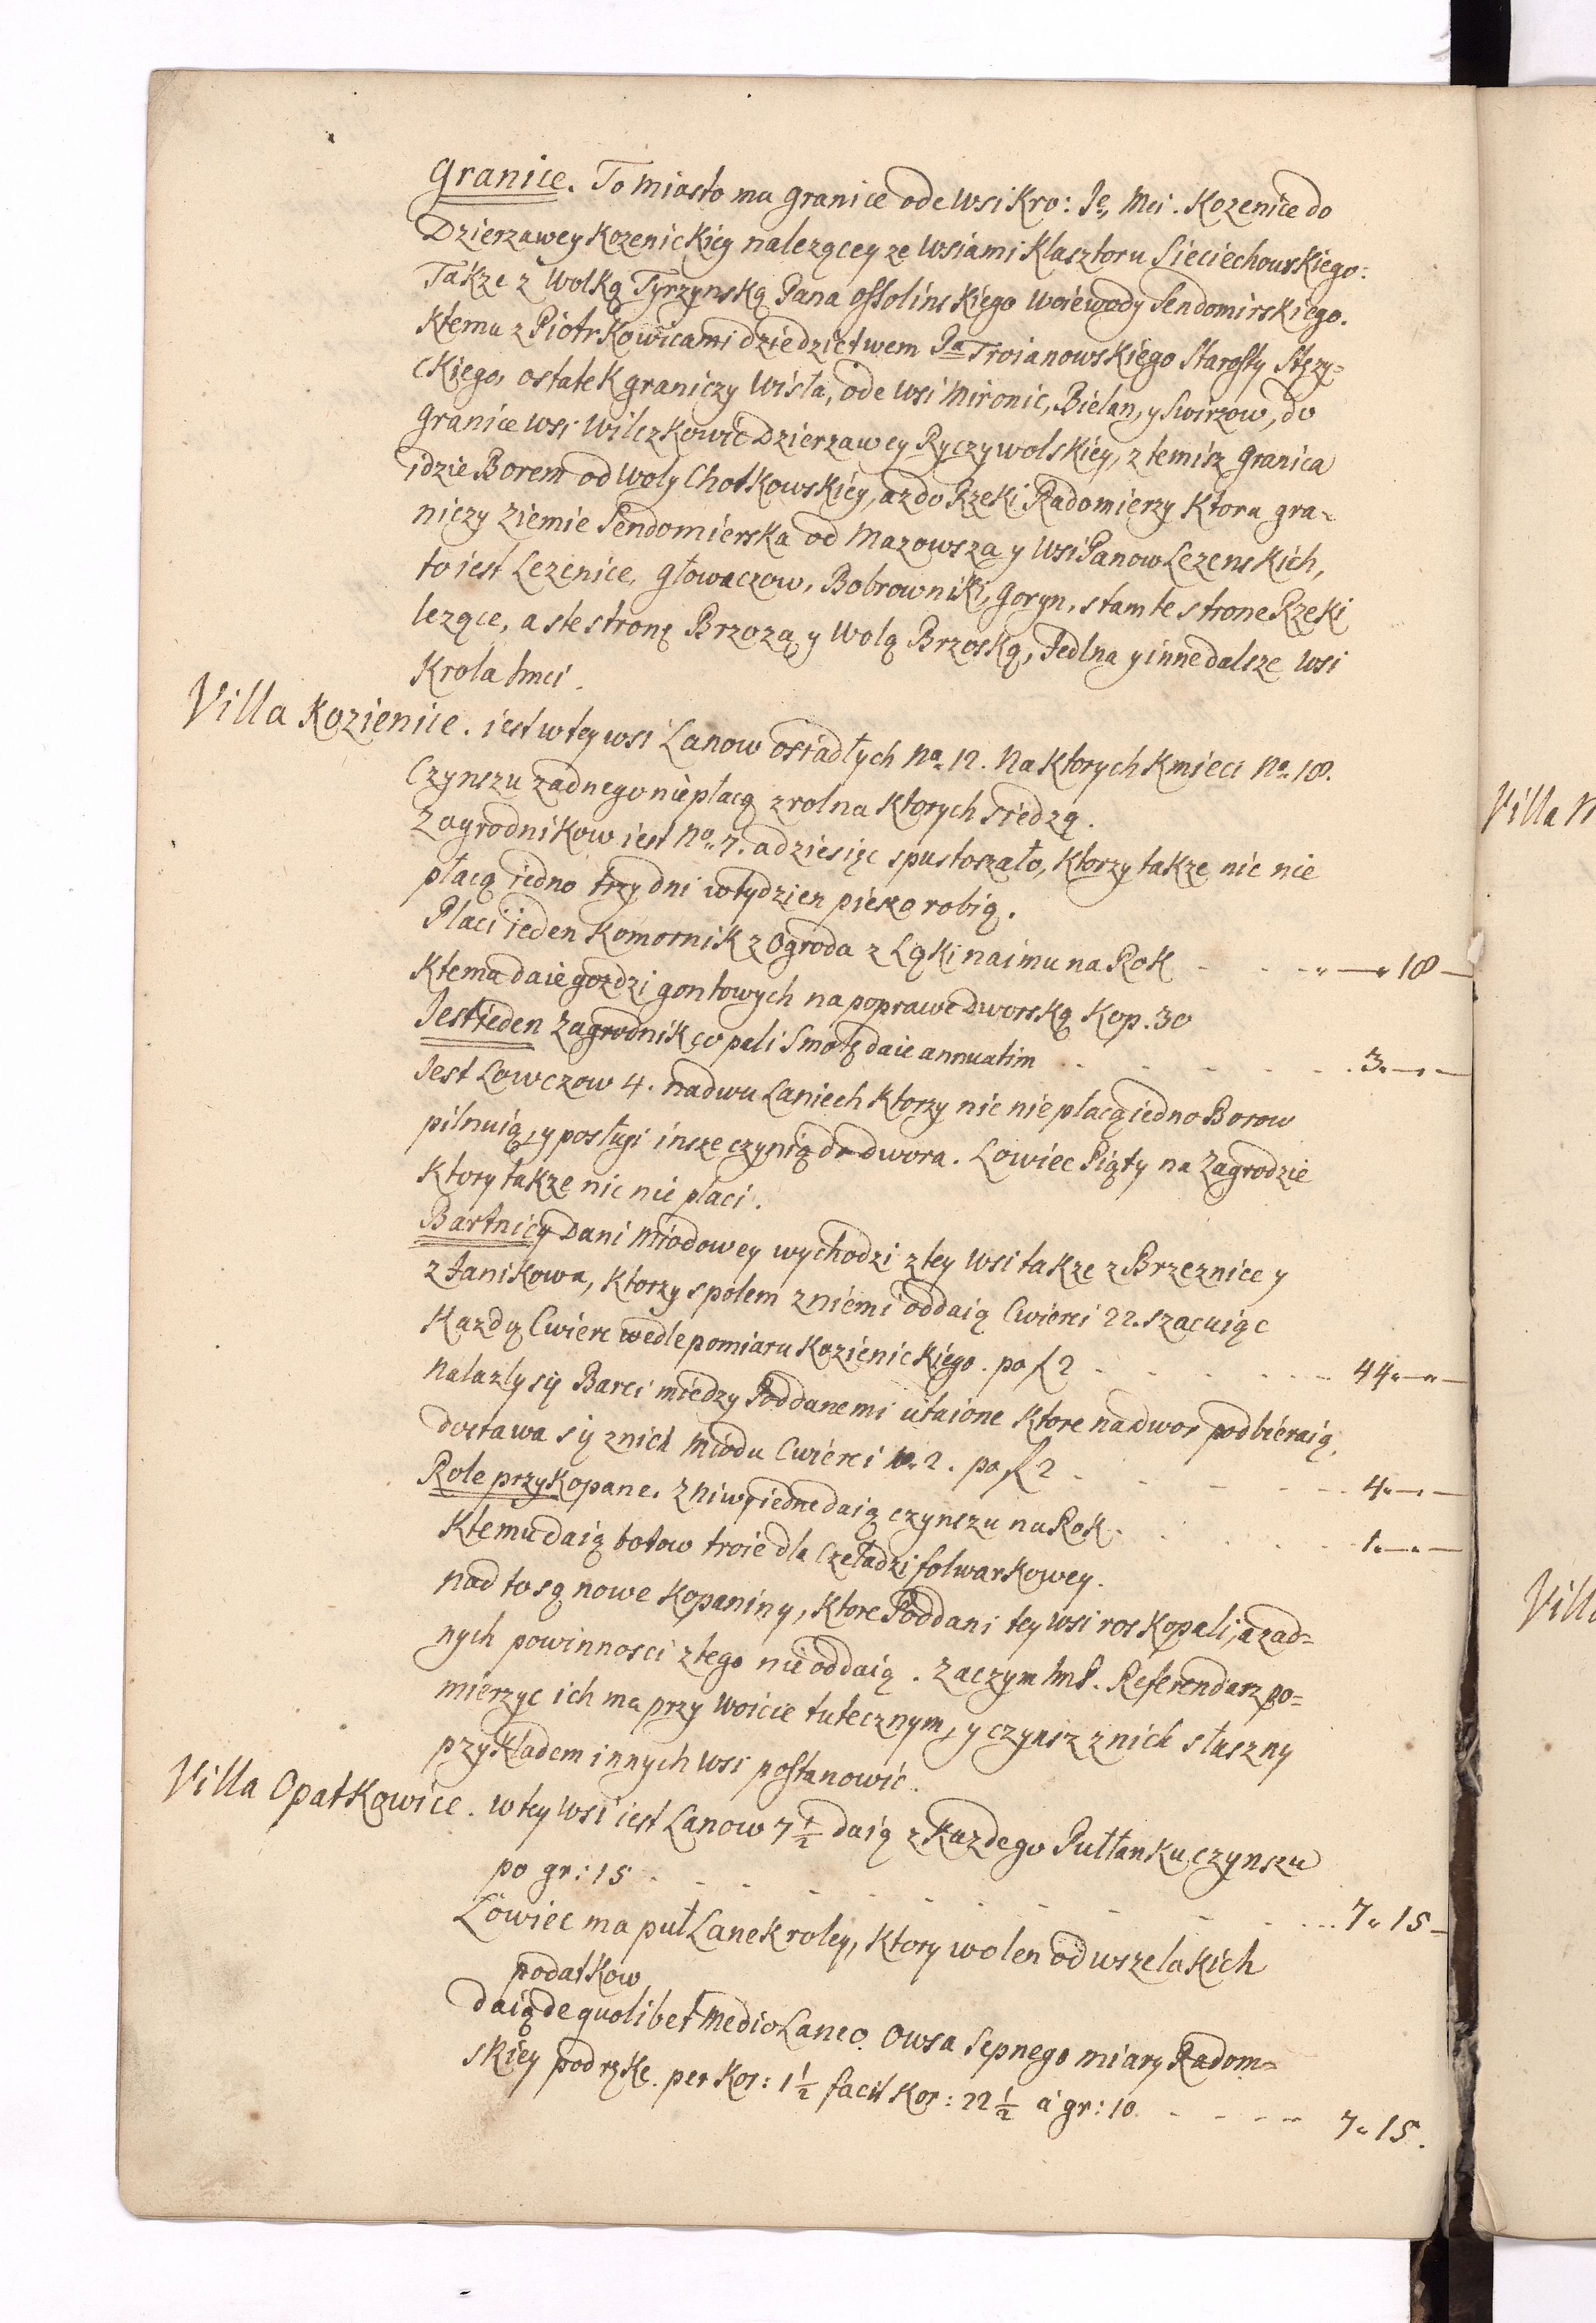 Granice. To Miasto ma granice ode Wsi Kro: Je, Mci. Kozenice do
Dzierzawey Kozenickiey nalezącey ze Wsiami Klasztoru Sieciechowskiego:
Takze z Wolką Tyrzynską Pana Ossolinskiego Woiewody Sendomirskiego.
Ktemu z Piotrkowicami dziedzictwem Pa Troianowskiego Starosty Stęzy=
ckiego, ostatek graniczy Wisła, ode Wsi Mironic, Bielan, y Swirzow, do
Granice Wsi Wilczkowic Dzierzawey Ryczywolskiey, z temisz Granica
idzie Borem od Woly Chotkowskiey, az do Rzeki Radomierzy Ktora gra=
niczy Ziemie Sendomierska od Mazowsza y Wsi Panow Lezenskich,
to iest Lezenice, Głowaczow, Bobrowniki, Goryn, s tamte strone Rzeki
lezące, a s te stronę Brzozą y Wolą Brzoską, Jedlna y inne dalsze Wsi
Krola Jmci.
Villa Kozienice. iest w tey wsi Lanow osiadłych No. 12. Na Ktorych Kmieci No. 18.
Czynszu zadnego nie płacą z rol na Ktorych siedzą.
Zagrodnikow iest No. 7. a dziesięc spustoszało, Ktorzy takze nic nie
płacą iedno trzy dni w tydzien pieszo robią.
Placi ieden Komornik z Ogroda z Ląki naimu na Rok - - - " — " 18 —
Ktemu daie gozdzi gontowych na poprawe Dworską Kop. 30
Jest ieden Zagrodnik co pali Smołę daie annuatim - - - - - 3. — . —
Jest Lowczow 4. na dwu Laniech Ktorzy nic nie placą iedno Borow
pilnuią, y posługi insze czynią do dwora. Lowiec Piąty na Zagrodzie
Ktory takze nic nie placi.
Bartnicy Dani Miodowey wychodzi z tey Wsi takze z Brzeznice y
z Janikowa, Ktorzy spolem z niemi oddaią Cwierci 22. szacuiąc
Kazdą Cwierc wedle pomiaru Kozienickiego. po f 2 - - - - - 44 " — " —
Nalazly się Barci miedzy Poddanemi utaione Ktore na dwor podbieraią,
dostawa się z nich Miodu Cwierci No. 2. po f 2 - - - - - 4 " — . —
Role przykopane. Z niwy iedne daią czynszu na Rok. - - - - 1. — . —
Ktemu daią botow troie dla Czeładzi folwarkowey.
Nad to są nowe Kopaniny, Ktore Poddani tey Wsi roskopali, a zad=
nych powinnosci z tego nie oddaią. Zaczym JmP. Referendarz po=
mierzyc ich ma przy Woicie tutecznym, y czynsz z nich słuszny
przykładem innych Wsi postanowić.
Villa Opatkowice. W tey Wsi iest Lanow 7 1/2 daią z Kazdego Pułłanku czynszu
po gr: 15 - - - - - - - - - 7 " 15 —
Lowiec ma puł Lanek roley, Ktory wolen od wszelakich
podatkow
daią de quolibet Medio Laneo. Owsa Sepnego miary Radom=
skiey pod rzke. per Kor: 1 1/2 facit Kor: 22 1/2 á gr: 10 - - - - 7 " 15.
Villa
Villa